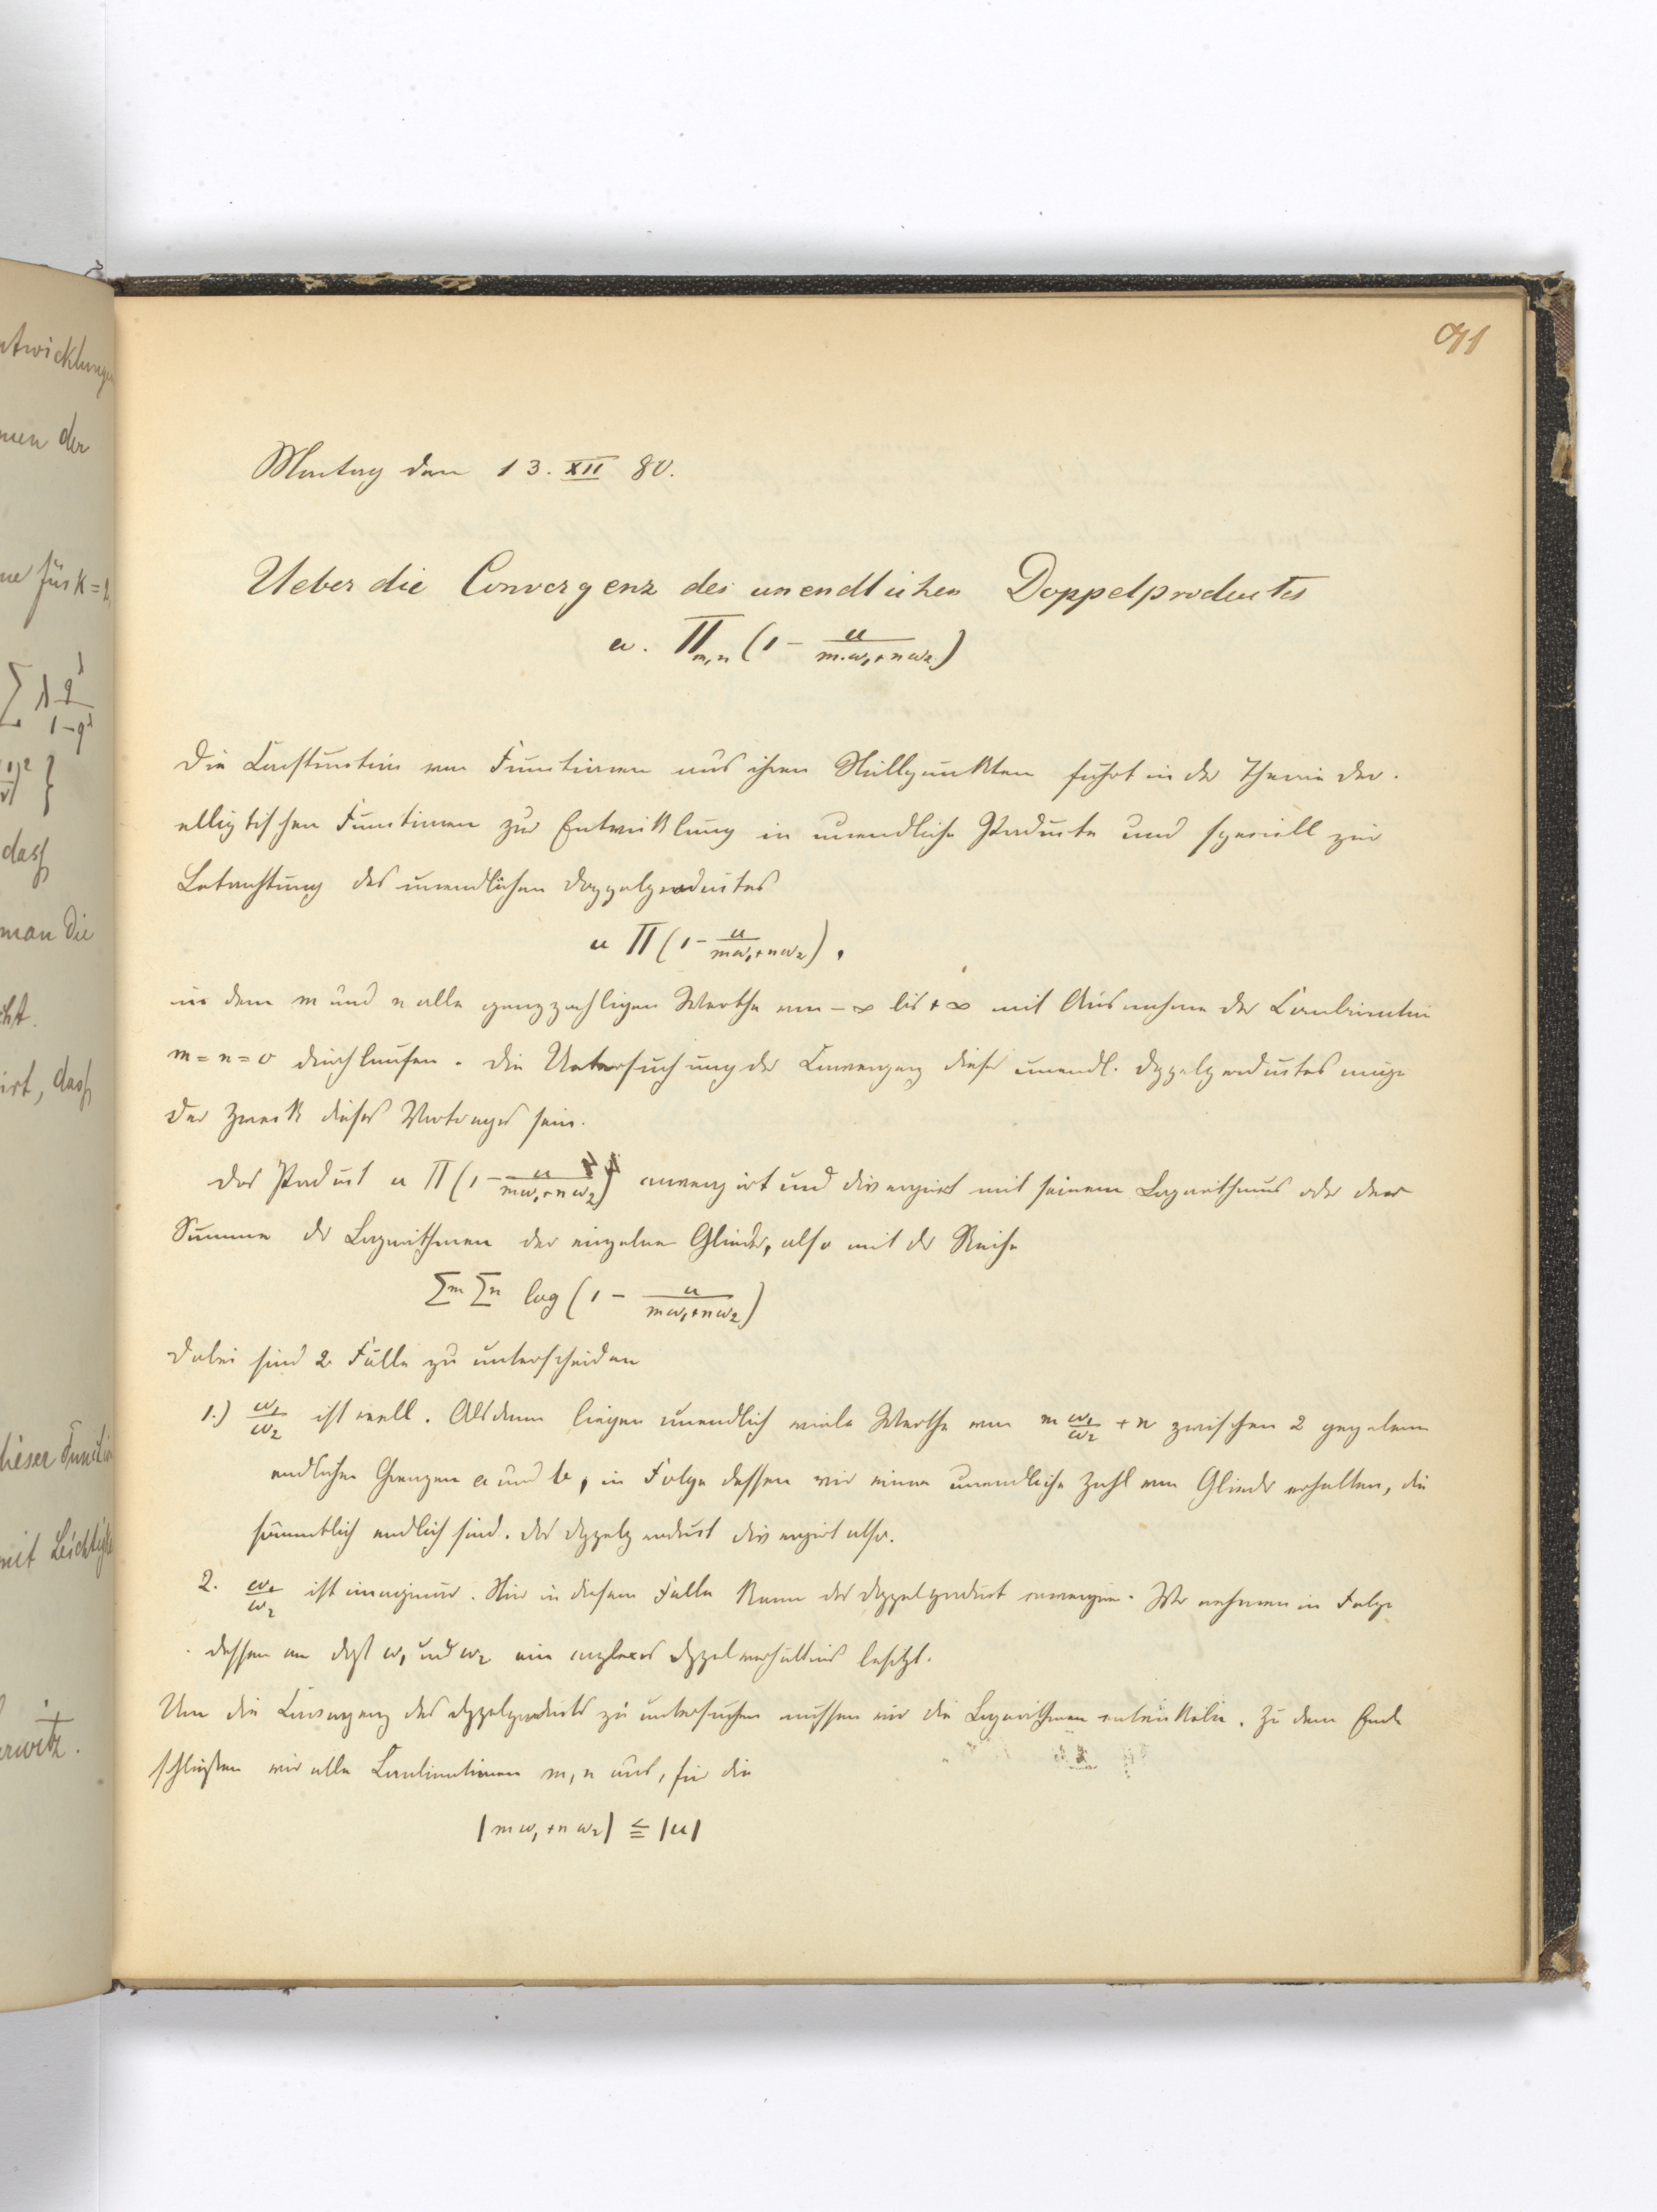 ntwicklunge
men der
ne für k=
∑ λ q^λ / 1-q^λ
dass
man die
cht.
irt, dass
dieser Functio
mit Leichtigk
rwitz.
91
Montag den 13. XII 80.
Ueber die Convergenz des unendlichen Doppelproductes
u. Π_{m,n} (1 - u/(m.ω₁+nω₂))
Die Construction von Functionen aus ihren Nullpunkten führt in der Theorie der
elliptischen Functionen zur Entwicklung in unendliche Producte und speciell zur
Betrachtung des unendlichen Doppelproductes
u Π (1 - u/(mω₁+nω₂)),
in dem m und n alle ganzzahligen Werthe von -∞ bis +∞ mit Ausnahme der Combination
m = n = 0 durchlaufen. Die Untersuchung der Convergenz dieses unendl. Doppelproductes möge
der Zweck dieses Vortrages sein.
Das Product u Π (1 - u/(mω₁+nω₂)) convergirt und divergirt mit seinem Logarithmus oder der
Summe der Logarithmen der einzelnen Glieder, also mit der Reihe
∑m ∑n log (1 - u/(mω₁+nω₂))
Dabei sind 2 Fälle zu unterscheiden
1.) ω₁/ω₂ ist reell. Alsdann liegen unendlich viele Werthe von m ω₁/ω₂ + n zwischen 2 gegebenen
endlichen Grenzen a und b, in Folge dessen wir eine unendliche Zahl von Glieder erhalten, die
sämmtlich endlich sind. Das Doppelproduct divergirt also.
2. ω₁/ω₂ ist imaginär. Nur in diesem Falle kann das Doppelproduct convergiren. Wir nehmen in Folge
dessen an dass ω₁ und ω₂ ein complexes Doppelverhältnis besitzt.
Um die Convergenz des Doppelproducts zu untersuchen müssen wir die Logarithmen entwickeln. Zu dem Ende
schließen wir alle Combinationen m, n aus, für die
|mω₁+nω₂| ≦ |u|